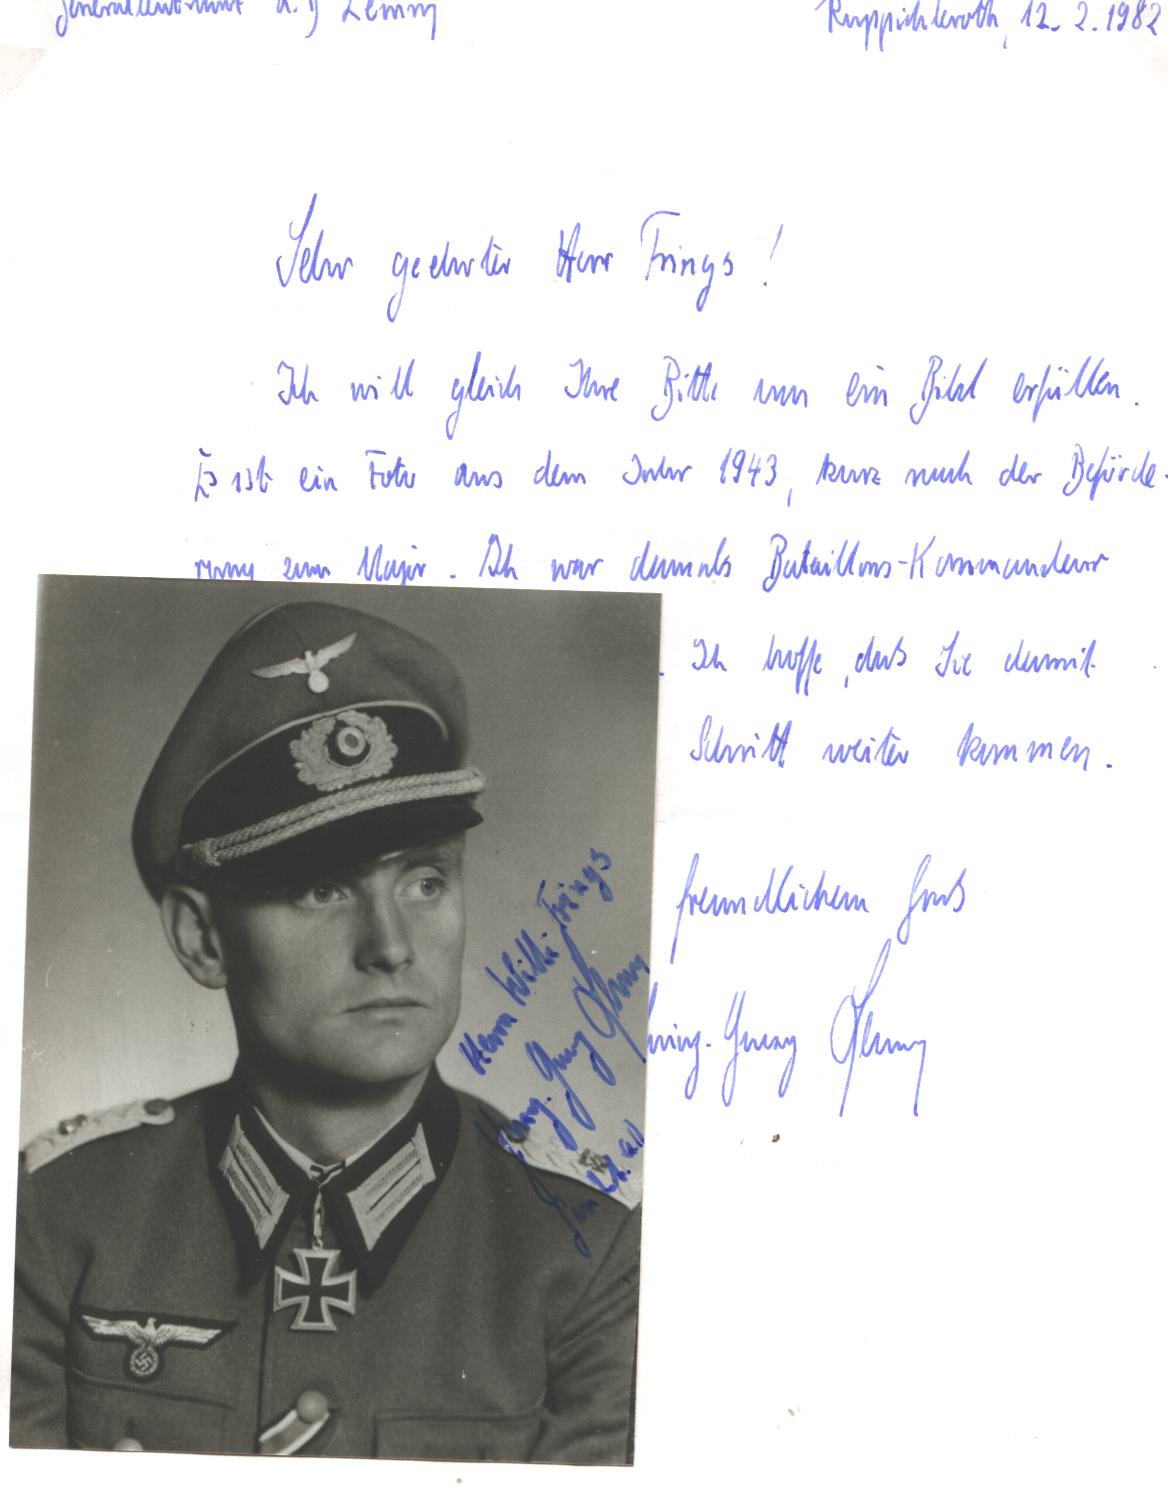 Generalleutnant a. D. Lemm
Ruppichteroth, 12. 2. 1982
Sehr geehrter Herr Frings!
Ich will gleich Ihre Bitte um ein Bild erfüllen.
Es ist ein Foto aus dem Jahr 1943, kurz nach der Beförde-
rung zum Major. Ich war damals Bataillons-Kommandeur
. Ich hoffe, daß Sie damit
Schritt weiter kommen.
freundlichem Gruß
Georg Lemm
Herrn Willi Frings
Heinz-Georg Lemm
Gen Lt. a.D.